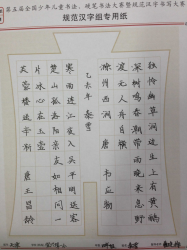 第五届全国少年儿童书法、硬笔书法大赛暨规范汉字书写大赛
规范汉字组专用纸
独怜幽草涧边生上有黄鹂
深树鸣春潮带雨晚来急野
渡无人舟自横
滁州西涧 唐 韦应物
乙未年
寒雨连江夜入吴平明送客
楚山孤洛阳亲友如相问一
片冰心在玉壶
芙蓉楼送辛渐 唐 王昌龄